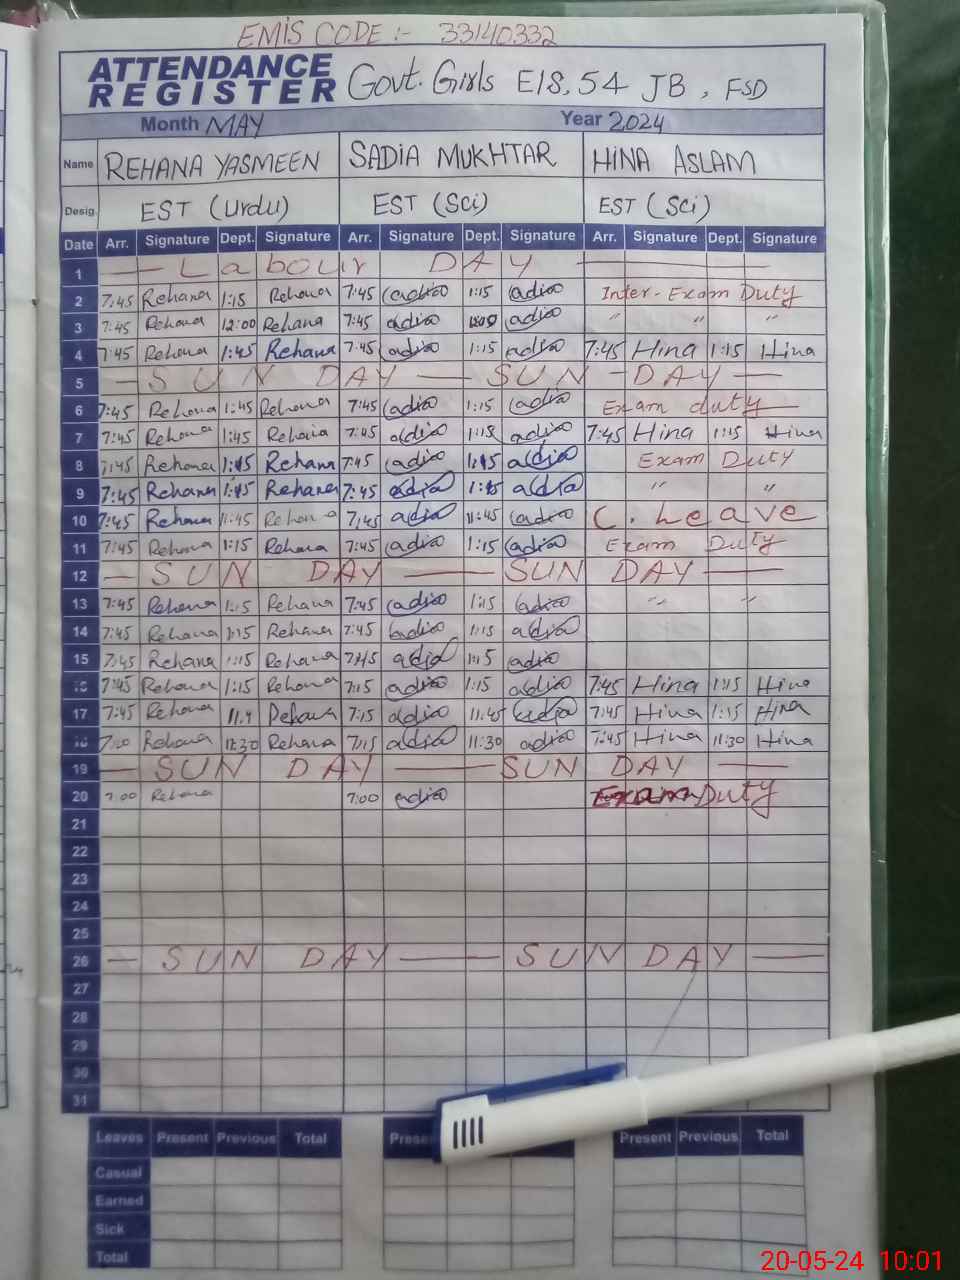 EMIS CODE :- 33140332
ATTENDANCE REGISTER Govt. Girls E/S, 54 JB, FSD
Month MAY Year 2024
Name REHANA YASMEEN SADIA MUKHTAR HINA ASLAM
Desig. EST (Urdu) EST (Sci) EST (Sci)
Date Arr. Signature Dept. Signature Arr. Signature Dept. Signature Arr. Signature Dept. Signature
1 — Labour DAY —
2 7:45 Rehana 1:15 Rehana 7:45 adia 1:15 adia Inter-Exam Duty
3 7:45 Rehana 12:00 Rehana 7:45 adia adia " " "
4 7:45 Rehana 1:45 Rehana 7:45 adia 1:15 adia 7:45 Hina 1:15 Hina
5 — SUN DAY — SUN — DAY —
6 7:45 Rehana 1:45 Rehana 7:45 adia 1:15 adia Exam duty —
7 7:45 Rehana 1:45 Rehana 7:45 adia 1:15 adia 7:45 Hina 1:15 Hina
8 7:45 Rehana 1:15 Rehana 7:45 adia 1:15 adia Exam Duty
9 7:45 Rehana 1:15 Rehana 7:45 adia 1:15 adia " "
10 7:45 Rehana 11:45 Rehana 7:45 adia 11:45 adia C. Leave
11 7:45 Rehana 1:15 Rehana 7:45 adia 1:15 adia Exam Duty
12 — SUN DAY — SUN DAY —
13 7:45 Rehana 1:15 Rehana 7:45 adia 1:15 adia " "
14 7:45 Rehana 1:15 Rehana 7:45 adia 1:15 adia
15 7:45 Rehana 1:15 Rehana 7:45 adia 1:15 adia
16 7:45 Rehana 1:15 Rehana 7:15 adia 1:15 adia 7:45 Hina 1:15 Hina
17 7:45 Rehana Rehana 7:15 adia 11:45 adia 7:45 Hina 1:15 Hina
18 7:00 Rehana 11:30 Rehana 7:15 adia 11:30 adia 7:45 Hina 11:30 Hina
19 — SUN DAY — SUN DAY —
20 7:00 Rehana 7:00 adia Exam Duty
21
22
23
24
25
26 — SUN DAY — SUN DAY —
27
28
29
30
31
Leaves Present Previous Total Present Previous Total
Casual
Earned
Sick
Total
20-05-24 10:01